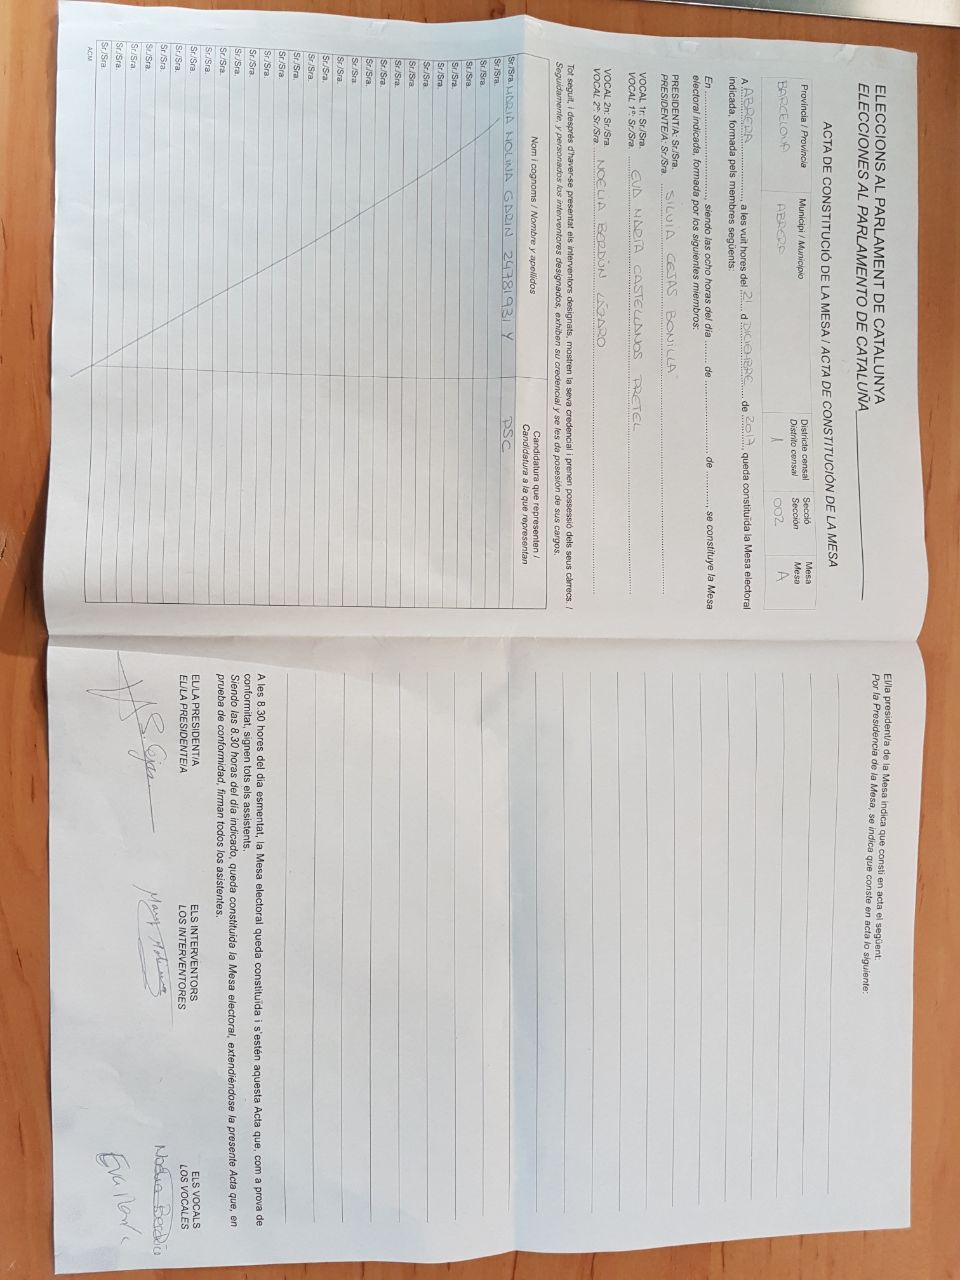 ELECCIONS AL PARLAMENT DE CATALUNYA
ELECCIONES AL PARLAMENTO DE CATALUÑA
ACTA DE CONSTITUCIÓ DE LA MESA / ACTA DE CONSTITUCIÓN DE LA MESA
Província / Provincia Municipi / Municipio Districte censal Secció Mesa
Distrito censal Sección Mesa
BARCELONA ABRERA 1 002 A
A ABRERA a les vuit hores del 21 d DICIEMBRE de 2017, queda constituïda la Mesa electoral
indicada, formada pels membres següents:
En ........, siendo las ocho horas del día ........ de ........ de ........, se constituye la Mesa
electoral indicada, formada por los siguientes miembros:
PRESIDENT/A: Sr./Sra.
PRESIDENTE/A: Sr./Sra. SILVIA CEJAS BONILLA
VOCAL 1r: Sr./Sra.
VOCAL 1º: Sr./Sra. EVA MARIA CASTELLANOS PRETEL
VOCAL 2n: Sr./Sra.
VOCAL 2º: Sr./Sra. NOELIA BERDÚN LÁZARO
Tot seguit, i després d'haver-se presentat els interventors designats, mostren la seva credencial i prenen possessió dels seus càrrecs. /
Seguidamente, y personados los interventores designados, exhiben su credencial y se les da posesión de sus cargos.
Nom i cognoms / Nombre y apellidos Candidatura que representen /
Candidatura a la que representan
Sr./Sra. MARIA MOLINA GARIN 24781931 Y PSC
Sr./Sra.
Sr./Sra.
Sr./Sra.
Sr./Sra.
Sr./Sra.
Sr./Sra.
Sr./Sra.
Sr./Sra.
Sr./Sra.
Sr./Sra.
Sr./Sra.
Sr./Sra.
Sr./Sra.
Sr./Sra.
Sr./Sra.
Sr./Sra.
Sr./Sra.
Sr./Sra.
Sr./Sra.
Sr./Sra.
Sr./Sra.
Sr./Sra.
Sr./Sra.
Sr./Sra.
Sr./Sra.
Sr./Sra.
Sr./Sra.
Sr./Sra.
ACM
El/la president/a de la Mesa indica que consti en acta el següent:
Por la Presidencia de la Mesa, se indica que conste en acta lo siguiente:
A les 8.30 hores del dia esmentat, la Mesa electoral queda constituïda i s'estén aquesta Acta que, com a prova de
conformitat, signen tots els assistents.
Siendo las 8.30 horas del día indicado, queda constituida la Mesa electoral, extendiéndose la presente Acta que, en
prueba de conformidad, firman todos los asistentes.
EL/LA PRESIDENT/A ELS INTERVENTORS ELS VOCALS
EL/LA PRESIDENTE/A LOS INTERVENTORES LOS VOCALES